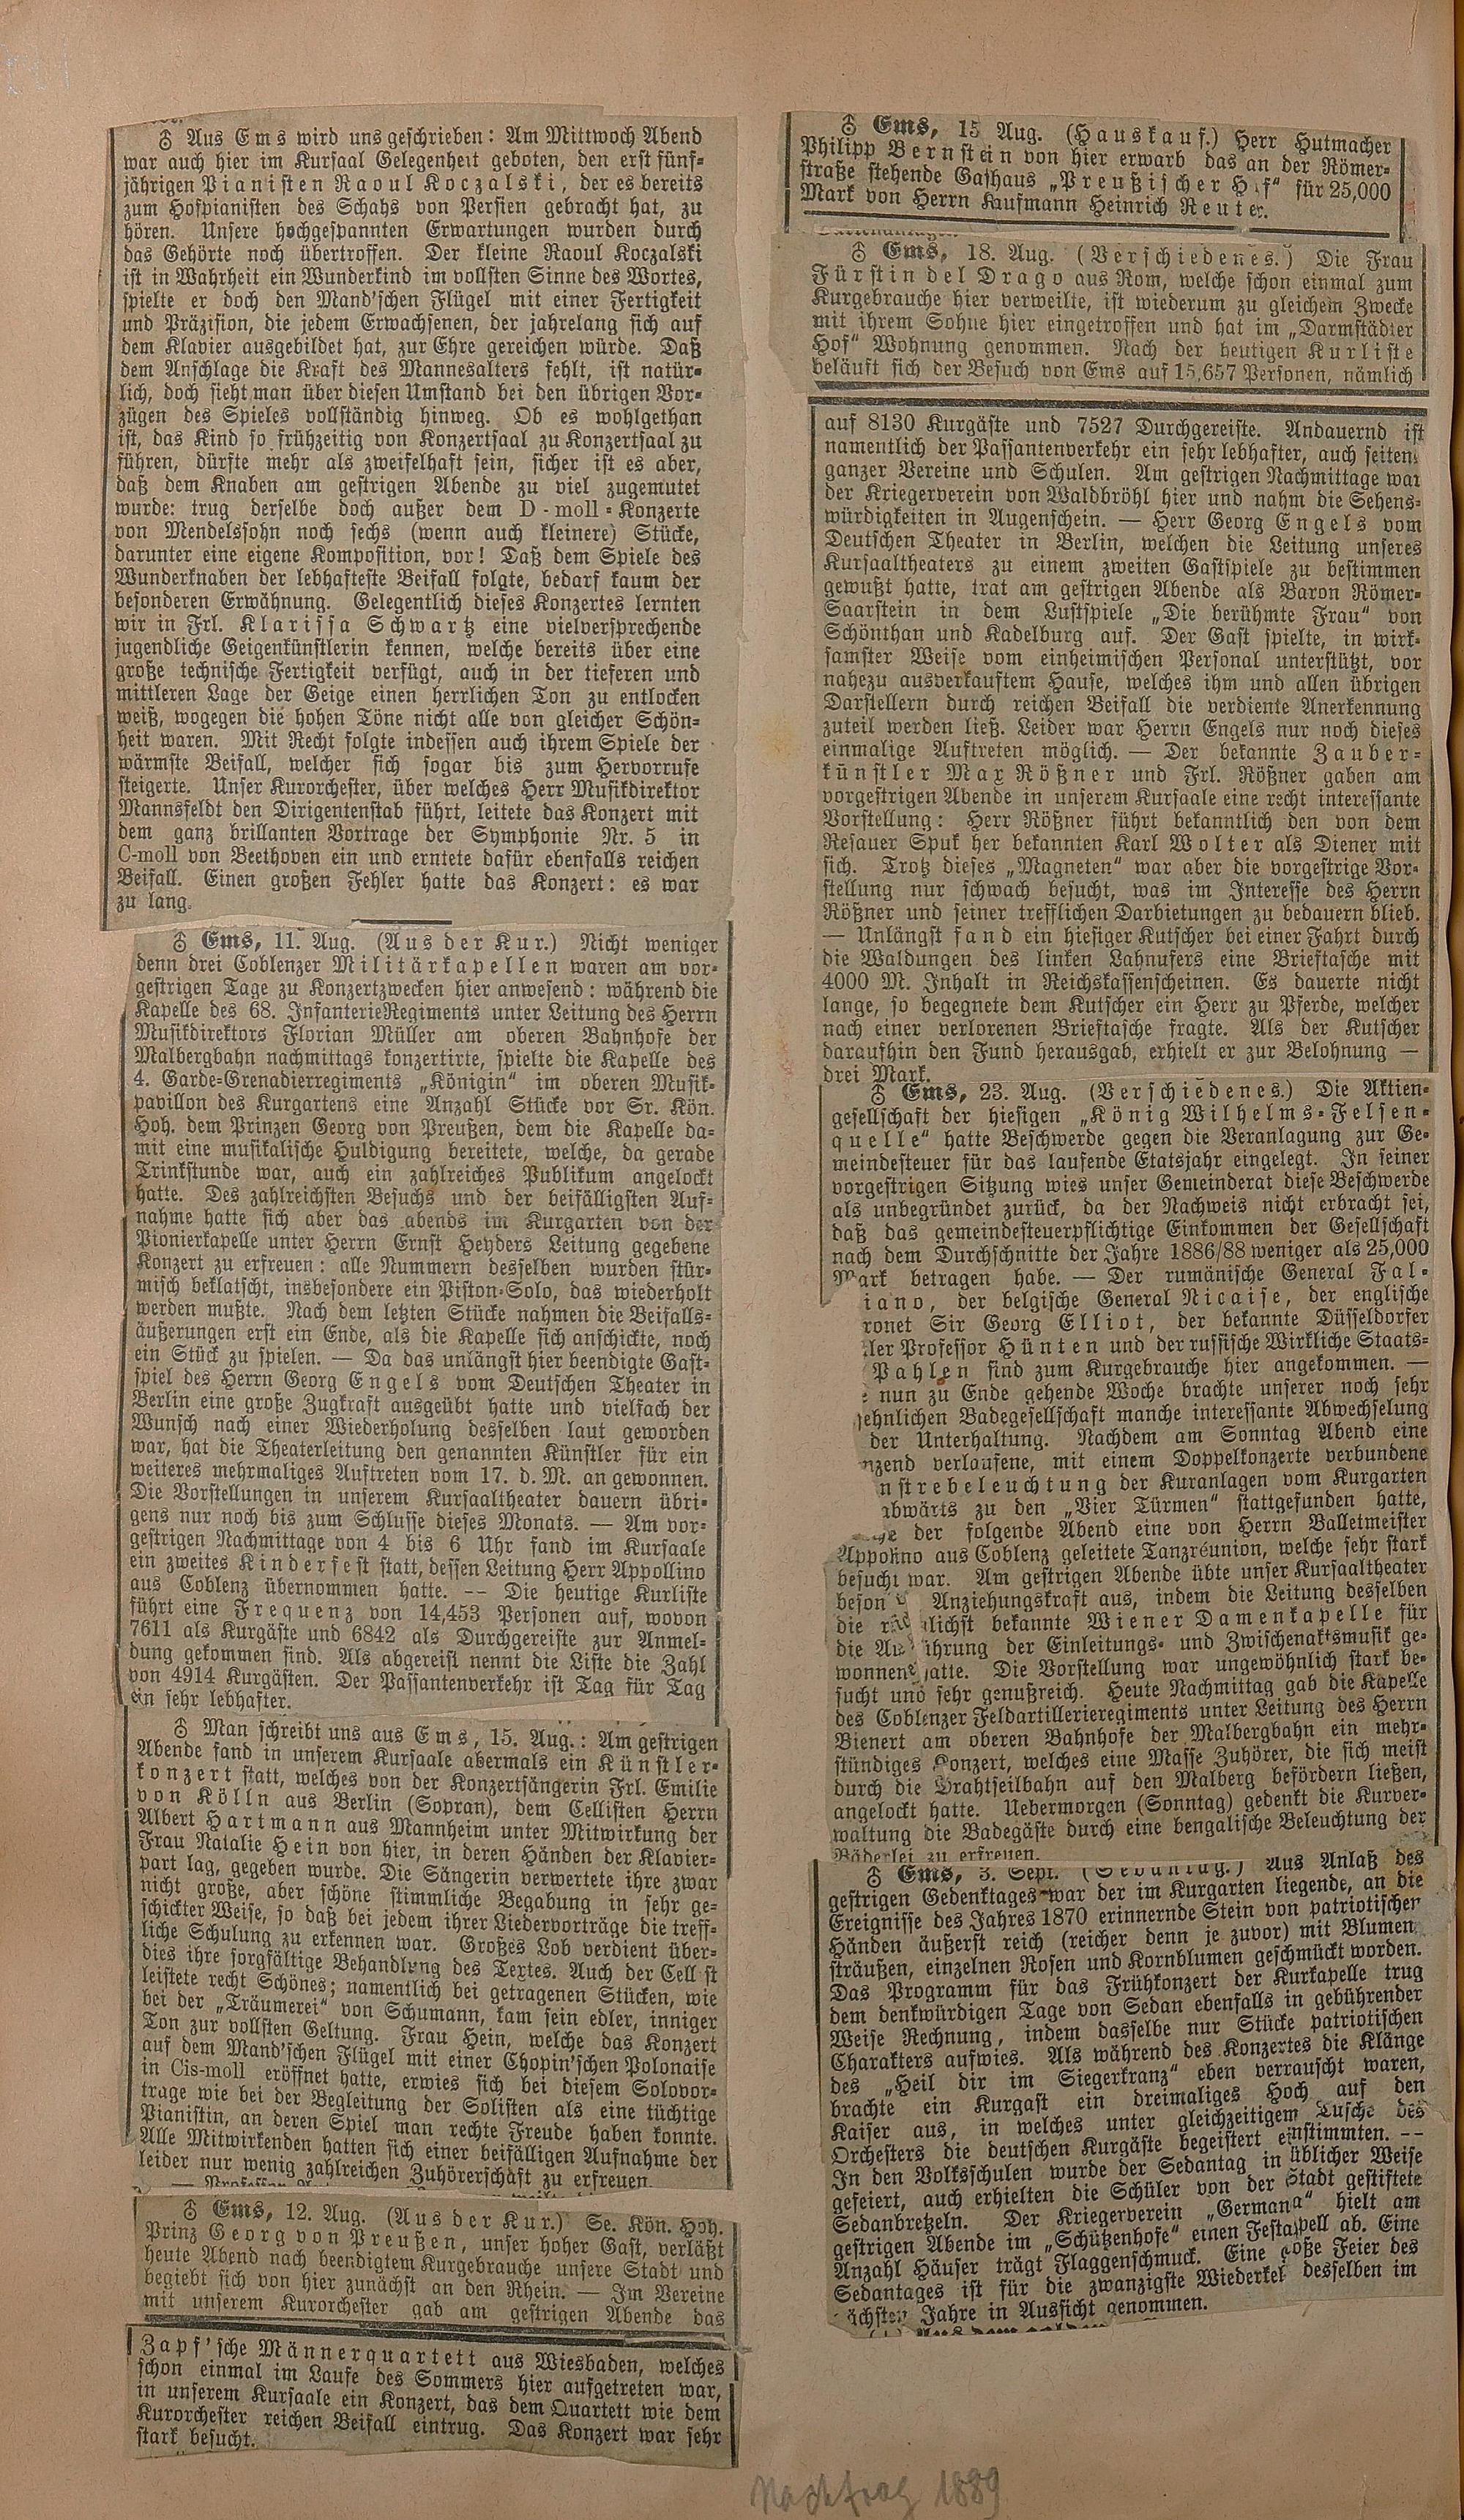 ♁ Aus Ems wird uns geschrieben: Am Mittwoch Abend
war auch hier im Kursaal Gelegenheit geboten, den erst fünf-
jährigen Pianisten Raoul Koczalski, der es bereits
zum Hofpianisten des Schahs von Persien gebracht hat, zu
hören. Unsere hochgespannten Erwartungen wurden durch
das Gehörte noch übertroffen. Der kleine Raoul Koczalski
ist in Wahrheit ein Wunderkind im vollsten Sinne des Wortes,
spielte er doch den Mand'schen Flügel mit einer Fertigkeit
und Präzision, die jedem Erwachsenen, der jahrelang sich auf
dem Klavier ausgebildet hat, zur Ehre gereichen würde. Daß
dem Anschlage die Kraft des Mannesalters fehlt, ist natür-
lich, doch sieht man über diesen Umstand bei den übrigen Vor-
zügen des Spieles vollständig hinweg. Ob es wohlgethan
ist, das Kind so frühzeitig von Konzertsaal zu Konzertsaal zu
führen, dürfte mehr als zweifelhaft sein, sicher ist es aber,
daß dem Knaben am gestrigen Abende zu viel zugemutet
wurde: trug derselbe doch außer dem D-moll-Konzerte
von Mendelssohn noch sechs (wenn auch kleinere) Stücke,
darunter eine eigene Komposition, vor! Daß dem Spiele des
Wunderknaben der lebhafteste Beifall folgte, bedarf kaum der
besonderen Erwähnung. Gelegentlich dieses Konzertes lernten
wir in Frl. Klarissa Schwartz eine vielversprechende
jugendliche Geigenkünstlerin kennen, welche bereits über eine
große technische Fertigkeit verfügt, auch in der tieferen und
mittleren Lage der Geige einen herrlichen Ton zu entlocken
weiß, wogegen die hohen Töne nicht alle von gleicher Schön-
heit waren. Mit Recht folgte indessen auch ihrem Spiele der
wärmste Beifall, welcher sich sogar bis zum Hervorrufe
steigerte. Unser Kurorchester, über welches Herr Musikdirektor
Mannsfeldt den Dirigentenstab führt, leitete das Konzert mit
dem ganz brillanten Vortrage der Symphonie Nr. 5 in
C-moll von Beethoven ein und erntete dafür ebenfalls reichen
Beifall. Einen großen Fehler hatte das Konzert: es war
zu lang.
♁ Ems, 11. Aug. (Aus der Kur.) Nicht weniger
denn drei Coblenzer Militärkapellen waren am vor-
gestrigen Tage zu Konzertzwecken hier anwesend: während die
Kapelle des 68. InfanterieRegiments unter Leitung des Herrn
Musikdirektors Florian Müller am oberen Bahnhofe der
Malbergbahn nachmittags konzertirte, spielte die Kapelle des
4. Garde-Grenadierregiments „Königin“ im oberen Musik-
pavillon des Kurgartens eine Anzahl Stücke vor Sr. Kön.
Hoh. dem Prinzen Georg von Preußen, dem die Kapelle da-
mit eine musikalische Huldigung bereitete, welche, da gerade
Trinkstunde war, auch ein zahlreiches Publikum angelockt
hatte. Des zahlreichsten Besuchs und der beifälligsten Auf-
nahme hatte sich aber das abends im Kurgarten von der
Pionierkapelle unter Herrn Ernst Heyders Leitung gegebene
Konzert zu erfreuen: alle Nummern desselben wurden stür-
misch beklatscht, insbesondere ein Piston-Solo, das wiederholt
werden mußte. Nach dem letzten Stücke nahmen die Beifalls-
äußerungen erst ein Ende, als die Kapelle sich anschickte, noch
ein Stück zu spielen. — Da das unlängst hier beendigte Gast-
spiel des Herrn Georg Engels vom Deutschen Theater in
Berlin eine große Zugkraft ausgeübt hatte und vielfach der
Wunsch nach einer Wiederholung desselben laut geworden
war, hat die Theaterleitung den genannten Künstler für ein
weiteres mehrmaliges Auftreten vom 17. d. M. an gewonnen.
Die Vorstellungen in unserem Kursaaltheater dauern übri-
gens nur noch bis zum Schlusse dieses Monats. — Am vor-
gestrigen Nachmittage von 4 bis 6 Uhr fand im Kursaale
ein zweites Kinderfest statt, dessen Leitung Herr Appollino
aus Coblenz übernommen hatte. -- Die heutige Kurliste
führt eine Frequenz von 14,453 Personen auf, wovon
7611 als Kurgäste und 6842 als Durchgereiste zur Anmel-
dung gekommen sind. Als abgereist nennt die Liste die Zahl
von 4914 Kurgästen. Der Passantenverkehr ist Tag für Tag
ein sehr lebhafter.
♁ Man schreibt uns aus Ems, 15. Aug.: Am gestrigen
Abende fand in unserem Kursaale abermals ein Künstler-
konzert statt, welches von der Konzertsängerin Frl. Emilie
von Kölln aus Berlin (Sopran), dem Cellisten Herrn
Albert Hartmann aus Mannheim unter Mitwirkung der
Frau Natalie Hein von hier, in deren Händen der Klavier-
part lag, gegeben wurde. Die Sängerin verwertete ihre zwar
nicht große, aber schöne stimmliche Begabung in sehr ge-
schickter Weise, so daß bei jedem ihrer Liedervorträge die treff-
liche Schulung zu erkennen war. Großes Lob verdient über-
dies ihre sorgfältige Behandlung des Textes. Auch der Cell st
leistete recht Schönes; namentlich bei getragenen Stücken, wie
bei der „Träumerei“ von Schumann, kam sein edler, inniger
Ton zur vollsten Geltung. Frau Hein, welche das Konzert
auf dem Mand'schen Flügel mit einer Chopin'schen Polonaise
in Cis-moll eröffnet hatte, erwies sich bei diesem Solovor-
trage wie bei der Begleitung der Solisten als eine tüchtige
Pianistin, an deren Spiel man rechte Freude haben konnte.
Alle Mitwirkenden hatten sich einer beifälligen Aufnahme der
leider nur wenig zahlreichen Zuhörerschaft zu erfreuen.
♁ Ems, 12. Aug. (Aus der Kur.) Se. Kön. Hoh.
Prinz Georg von Preußen, unser hoher Gast, verläßt
heute Abend nach beendigtem Kurgebrauche unsere Stadt und
begiebt sich von hier zunächst an den Rhein. — Im Vereine
mit unserem Kurorchester gab am gestrigen Abende das
Zapf'sche Männerquartett aus Wiesbaden, welches
schon einmal im Laufe des Sommers hier aufgetreten war,
in unserem Kursaale ein Konzert, das dem Quartett wie dem
Kurorchester reichen Beifall eintrug. Das Konzert war sehr
stark besucht.
♁ Ems, 15 Aug. (Hauskauf.) Herr Hutmacher
Philipp Bernstein von hier erwarb das an der Römer-
straße stehende Gasthaus „Preußischer H f“ für 25,000
Mark von Herrn Kaufmann Heinrich Reuter.
♁ Ems, 18. Aug. (Verschiedenes.) Die Frau
Fürstin del Drago aus Rom, welche schon einmal zum
Kurgebrauche hier verweilte, ist wiederum zu gleichem Zwecke
mit ihrem Sohne hier eingetroffen und hat im „Darmstädter
Hof“ Wohnung genommen. Nach der heutigen Kurliste
beläuft sich der Besuch von Ems auf 15,657 Personen, nämlich
auf 8130 Kurgäste und 7527 Durchgereiste. Andauernd ist
namentlich der Passantenverkehr ein sehr lebhafter, auch seiten
ganzer Vereine und Schulen. Am gestrigen Nachmittage war
der Kriegerverein von Waldbröhl hier und nahm die Sehens-
würdigkeiten in Augenschein. — Herr Georg Engels vom
Deutschen Theater in Berlin, welchen die Leitung unseres
Kursaaltheaters zu einem zweiten Gastspiele zu bestimmen
gewußt hatte, trat am gestrigen Abende als Baron Römer-
Saarstein in dem Lustspiele „Die berühmte Frau“ von
Schönthan und Kadelburg auf. Der Gast spielte, in wirk-
samster Weise vom einheimischen Personal unterstützt, vor
nahezu ausverkauftem Hause, welches ihm und allen übrigen
Darstellern durch reichen Beifall die verdiente Anerkennung
zuteil werden ließ. Leider war Herrn Engels nur noch dieses
einmalige Auftreten möglich. — Der bekannte Zauber-
künstler Max Rößner und Frl. Rößner gaben am
vorgestrigen Abende in unserem Kursaale eine recht interessante
Vorstellung: Herr Rößner führt bekanntlich den von dem
Resauer Spuk her bekannten Karl Wolter als Diener mit
sich. Trotz dieses „Magneten“ war aber die vorgestrige Vor-
stellung nur schwach besucht, was im Interesse des Herrn
Rößner und seiner trefflichen Darbietungen zu bedauern blieb.
— Unlängst fand ein hiesiger Kutscher bei einer Fahrt durch
die Waldungen des linken Lahnufers eine Brieftasche mit
4000 M. Inhalt in Reichskassenscheinen. Es dauerte nicht
lange, so begegnete dem Kutscher ein Herr zu Pferde, welcher
nach einer verlorenen Brieftasche fragte. Als der Kutscher
daraufhin den Fund herausgab, erhielt er zur Belohnung —
drei Mark.
♁ Ems, 23. Aug. (Verschiedenes.) Die Aktien-
gesellschaft der hiesigen „König Wilhelms-Felsen-
quelle“ hatte Beschwerde gegen die Veranlagung zur Ge-
meindesteuer für das laufende Etatsjahr eingelegt. In seiner
vorgestrigen Sitzung wies unser Gemeinderat diese Beschwerde
als unbegründet zurück, da der Nachweis nicht erbracht sei,
daß das gemeindesteuerpflichtige Einkommen der Gesellschaft
nach dem Durchschnitte der Jahre 1886/88 weniger als 25,000
Mark betragen habe. — Der rumänische General Fal-
iano, der belgische General Nicaise, der englische
ronet Sir Georg Elliot, der bekannte Düsseldorfer
ler Professor Hünten und der russische Wirkliche Staats-
Pahlen sind zum Kurgebrauche hier angekommen. —
nun zu Ende gehende Woche brachte unserer noch sehr
sehnlichen Badegesellschaft manche interessante Abwechselung
der Unterhaltung. Nachdem am Sonntag Abend eine
nzend verlaufene, mit einem Doppelkonzerte verbundene
nstrebeleuchtung der Kuranlagen vom Kurgarten
abwärts zu den „Vier Türmen“ stattgefunden hatte,
der folgende Abend eine von Herrn Balletmeister
Appolino aus Coblenz geleitete Tanzréunion, welche sehr stark
besucht war. Am gestrigen Abende übte unser Kursaaltheater
beson Anziehungskraft aus, indem die Leitung desselben
die lichst bekannte Wiener Damenkapelle für
die Au ührung der Einleitungs- und Zwischenaktsmusik ge-
wonnen hatte. Die Vorstellung war ungewöhnlich stark be-
sucht und sehr genußreich. Heute Nachmittag gab die Kapelle
des Coblenzer Feldartillerieregiments unter Leitung des Herrn
Bienert am oberen Bahnhofe der Malbergbahn ein mehr-
stündiges Konzert, welches eine Masse Zuhörer, die sich meist
durch die Drahtseilbahn auf den Malberg befördern ließen,
angelockt hatte. Uebermorgen (Sonntag) gedenkt die Kurver-
waltung die Badegäste durch eine bengalische Beleuchtung der
Bäderlei zu erfreuen.
♁ Ems, 3. Sept. (Sedantag.) Aus Anlaß des
gestrigen Gedenktages war der im Kurgarten liegende, an die
Ereignisse des Jahres 1870 erinnernde Stein von patriotischen
Händen äußerst reich (reicher denn je zuvor) mit Blumen
sträußen, einzelnen Rosen und Kornblumen geschmückt worden.
Das Programm für das Frühkonzert der Kurkapelle trug
dem denkwürdigen Tage von Sedan ebenfalls in gebührender
Weise Rechnung, indem dasselbe nur Stücke patriotischen
Charakters aufwies. Als während des Konzertes die Klänge
des „Heil dir im Siegerkranz“ eben verrauscht waren,
brachte ein Kurgast ein dreimaliges Hoch auf den
Kaiser aus, in welches unter gleichzeitigem Tusche des
Orchesters die deutschen Kurgäste begeistert einstimmten. --
In den Volksschulen wurde der Sedantag in üblicher Weise
gefeiert, auch erhielten die Schüler von der Stadt gestiftete
Sedanbretzeln. Der Kriegerverein „Germana“ hielt am
gestrigen Abende im „Schützenhofe“ einen Festappell ab. Eine
Anzahl Häuser trägt Flaggenschmuck. Eine große Feier des
Sedantages ist für die zwanzigste Wiederkeh desselben im
ächsten Jahre in Aussicht genommen.
Nachtrag 1889